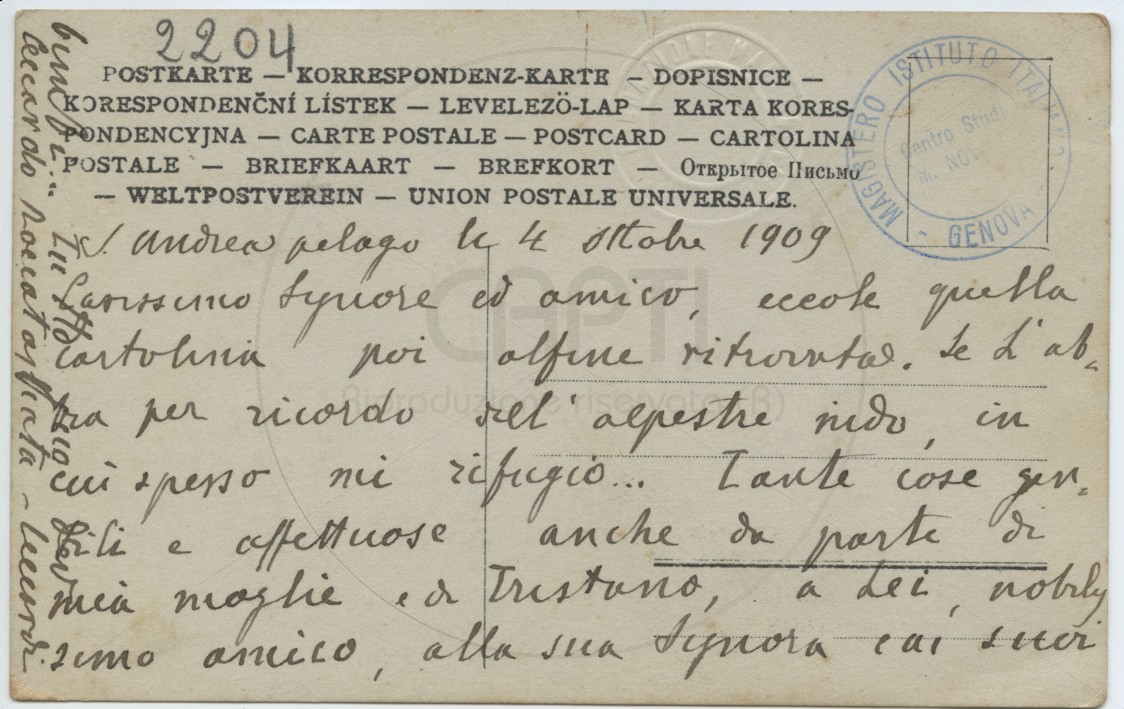 2204
POSTKARTE — KORRESPONDENZ-KARTE — DOPISNICE —
KORESPONDENČNÍ LÍSTEK — LEVELEZÖ-LAP — KARTA KORES-
PONDENCYJNA — CARTE POSTALE — POSTCARD — CARTOLINA
POSTALE — BRIEFKAART — BREFKORT — Открытое Письмо
— WELTPOSTVEREIN — UNION POSTALE UNIVERSALE.
MAGISTERO ISTITUTO ITALIANO
Centro Studi
M. NOV
- GENOVA
S. Andrea pelago li 4 ottobre 1909
Carissimo Signore ed amico, eccole quella
cartolina poi alfine ritrovata. Se l'ab-
bia per ricordo dell'alpestre nido, in
cui spesso mi rifugio... Tante cose gen-
tili e affettuose anche da parte di
mia moglie e di Tristano, a Lei, nobilis
simo amico, alla sua Signora e ai suoi
bimbi.
CAPTI
Riproduzione riservata (R)